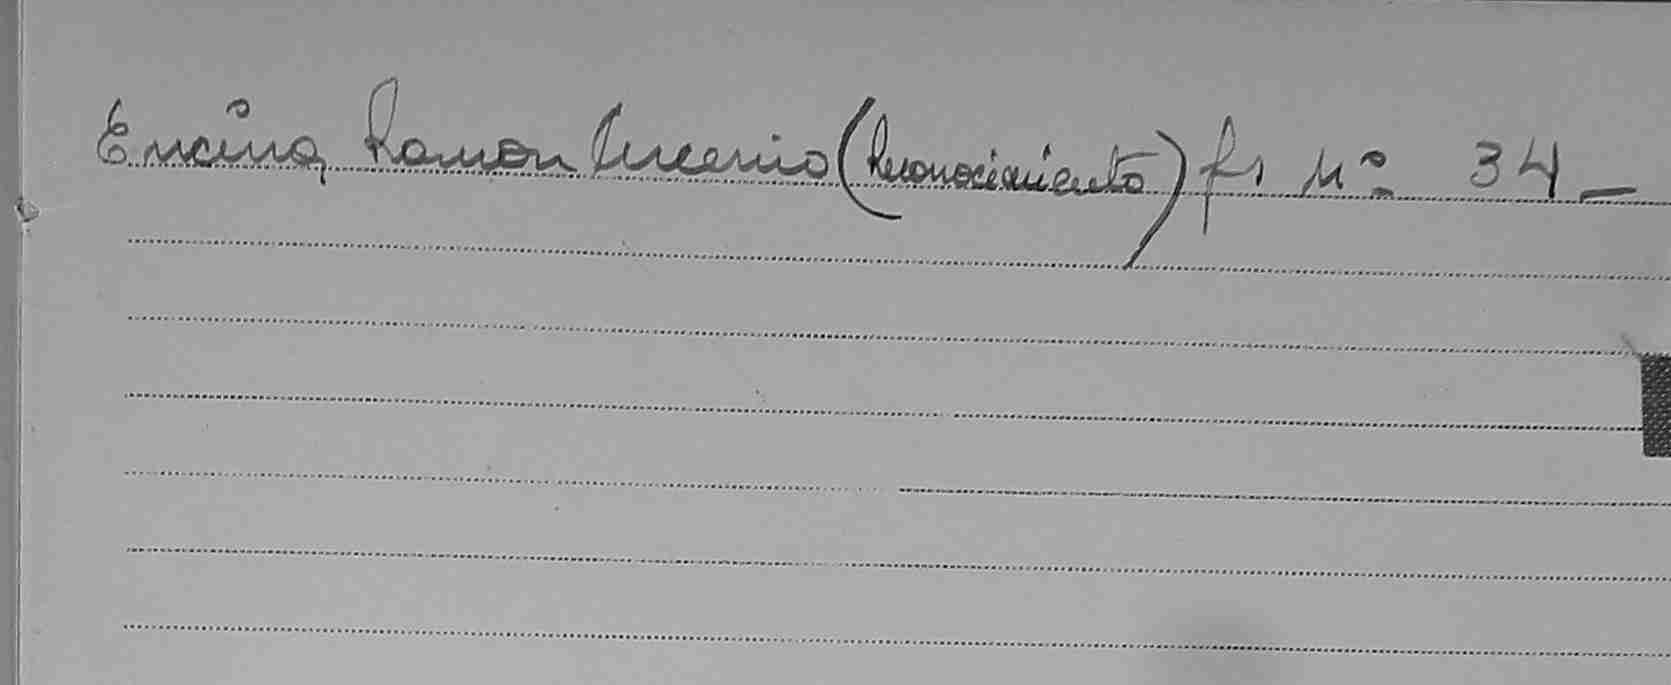 Encina, Ramon (Reconocimiento) fs Nº 34_